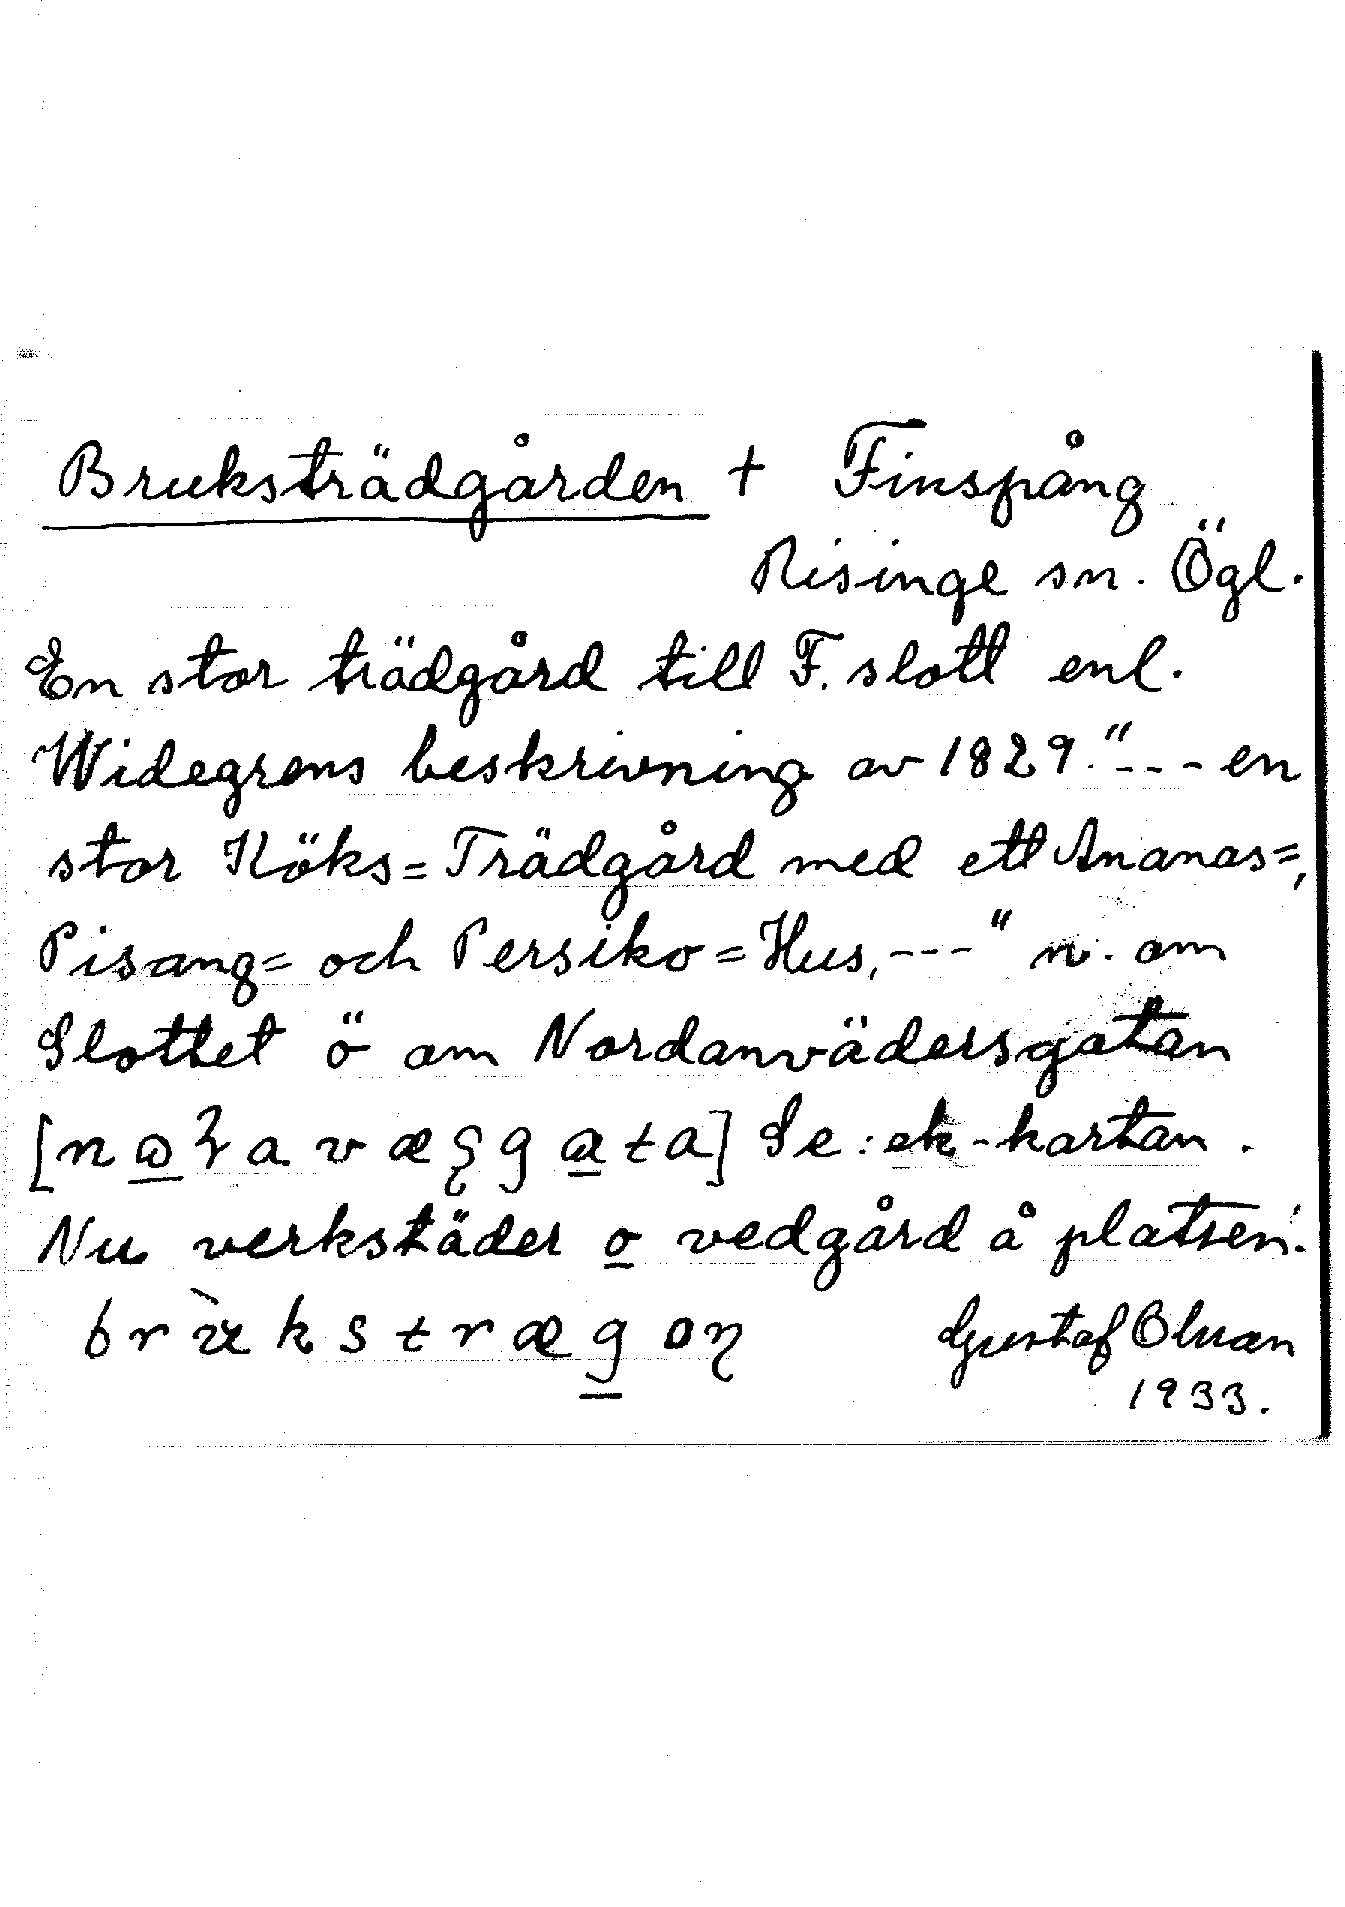 Bruksträdgården + Finspång
Risinge sn. Ögl.
En stor trädgård till F. slott enl.
Widegrens beskrivning av 1829. "--- en
stor Köks=Trädgård med ett Ananas=,
Pisang= och Persiko=Hus,---" n. om
Slottet ö om Nordanvädersgatan
Se: ek-kartan.
Nu verkstäder o vedgård å platsen.
Gustaf
1933.